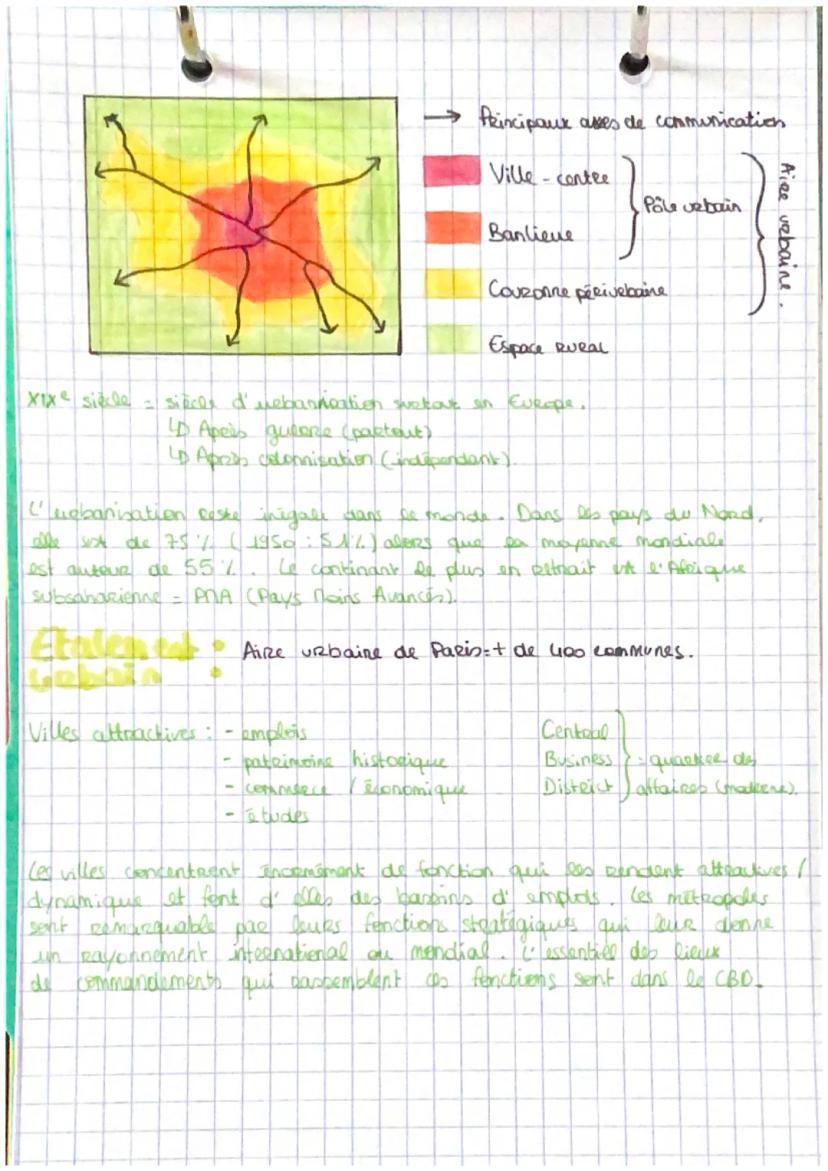 → Principaux axes de communication
Ville-centre
Pôle urbain
Banlieue
Aire urbaine.
Couronne périurbaine
Espace rural
XIXe siècle = siècle d'urbanisation surtout en Europe.
↳ Après guerre (partout)
↳ Après colonisation (indépendant).
L'urbanisation reste inégale dans le monde. Dans les pays du Nord,
elle est de 75% (1950 : 51%) alors que la moyenne mondiale
est autour de 55%. Le continant le plus en retrait est l'Afrique
subsaharienne = PMA (Pays Moins Avancés).
Etalement urbain : Aire urbaine de Paris = + de 400 communes.
Villes attractives : - emplois
- patrimoine historique
- commerce / économique
- études
Central
Business
District
= quartier des
affaires (moderne).
Les villes concentrent énormément de fonction qui les rendent attractives /
dynamique et font d'elles des bassins d'emplois. Les métropoles
sont remarquable par leurs fonctions stratégiques qui leur donne
un rayonnement international ou mondial. L'essentiel des lieux
de commandements qui rassemblent ces fonctions sont dans le CBD.